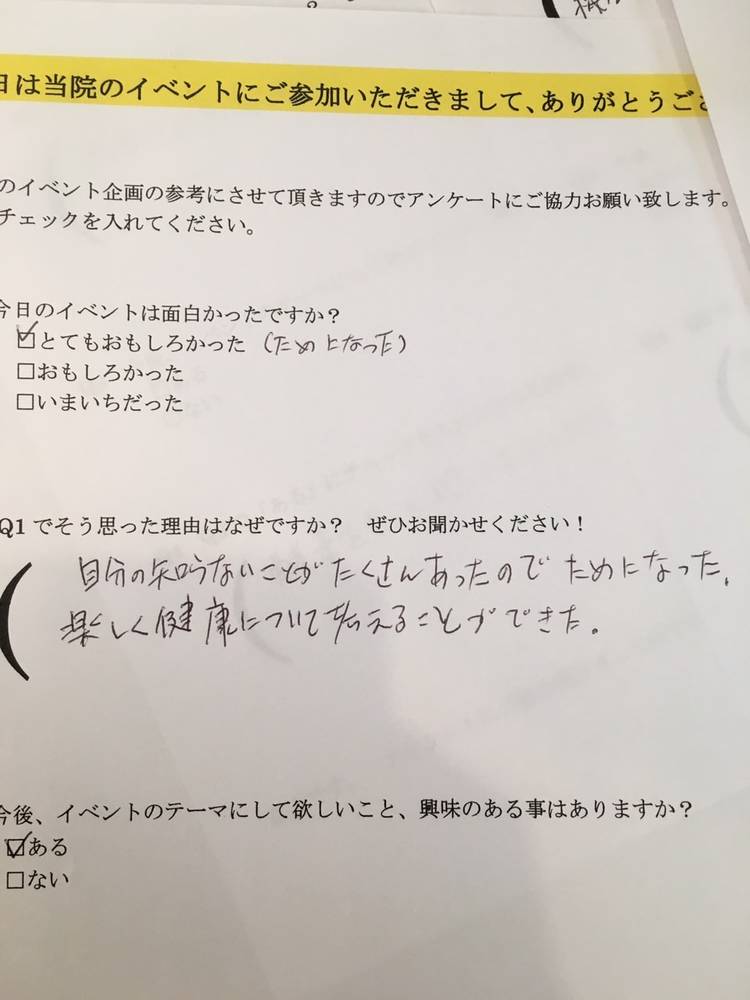 日は当院のイベントにご参加いただきまして、ありがとうござ
のイベント企画の参考にさせて頂きますのでアンケートにご協力お願い致します。
チェックを入れてください。
今日のイベントは面白かったですか？
☑とてもおもしろかった (ためになった)
□おもしろかった
□いまいちだった
Q1 でそう思った理由はなぜですか？ ぜひお聞かせください！
(自分の知らないことがたくさんあったのでためになった。
楽しく健康について考えることができた。
今後、イベントのテーマにして欲しいこと、興味のある事はありますか？
☑ある
□ない